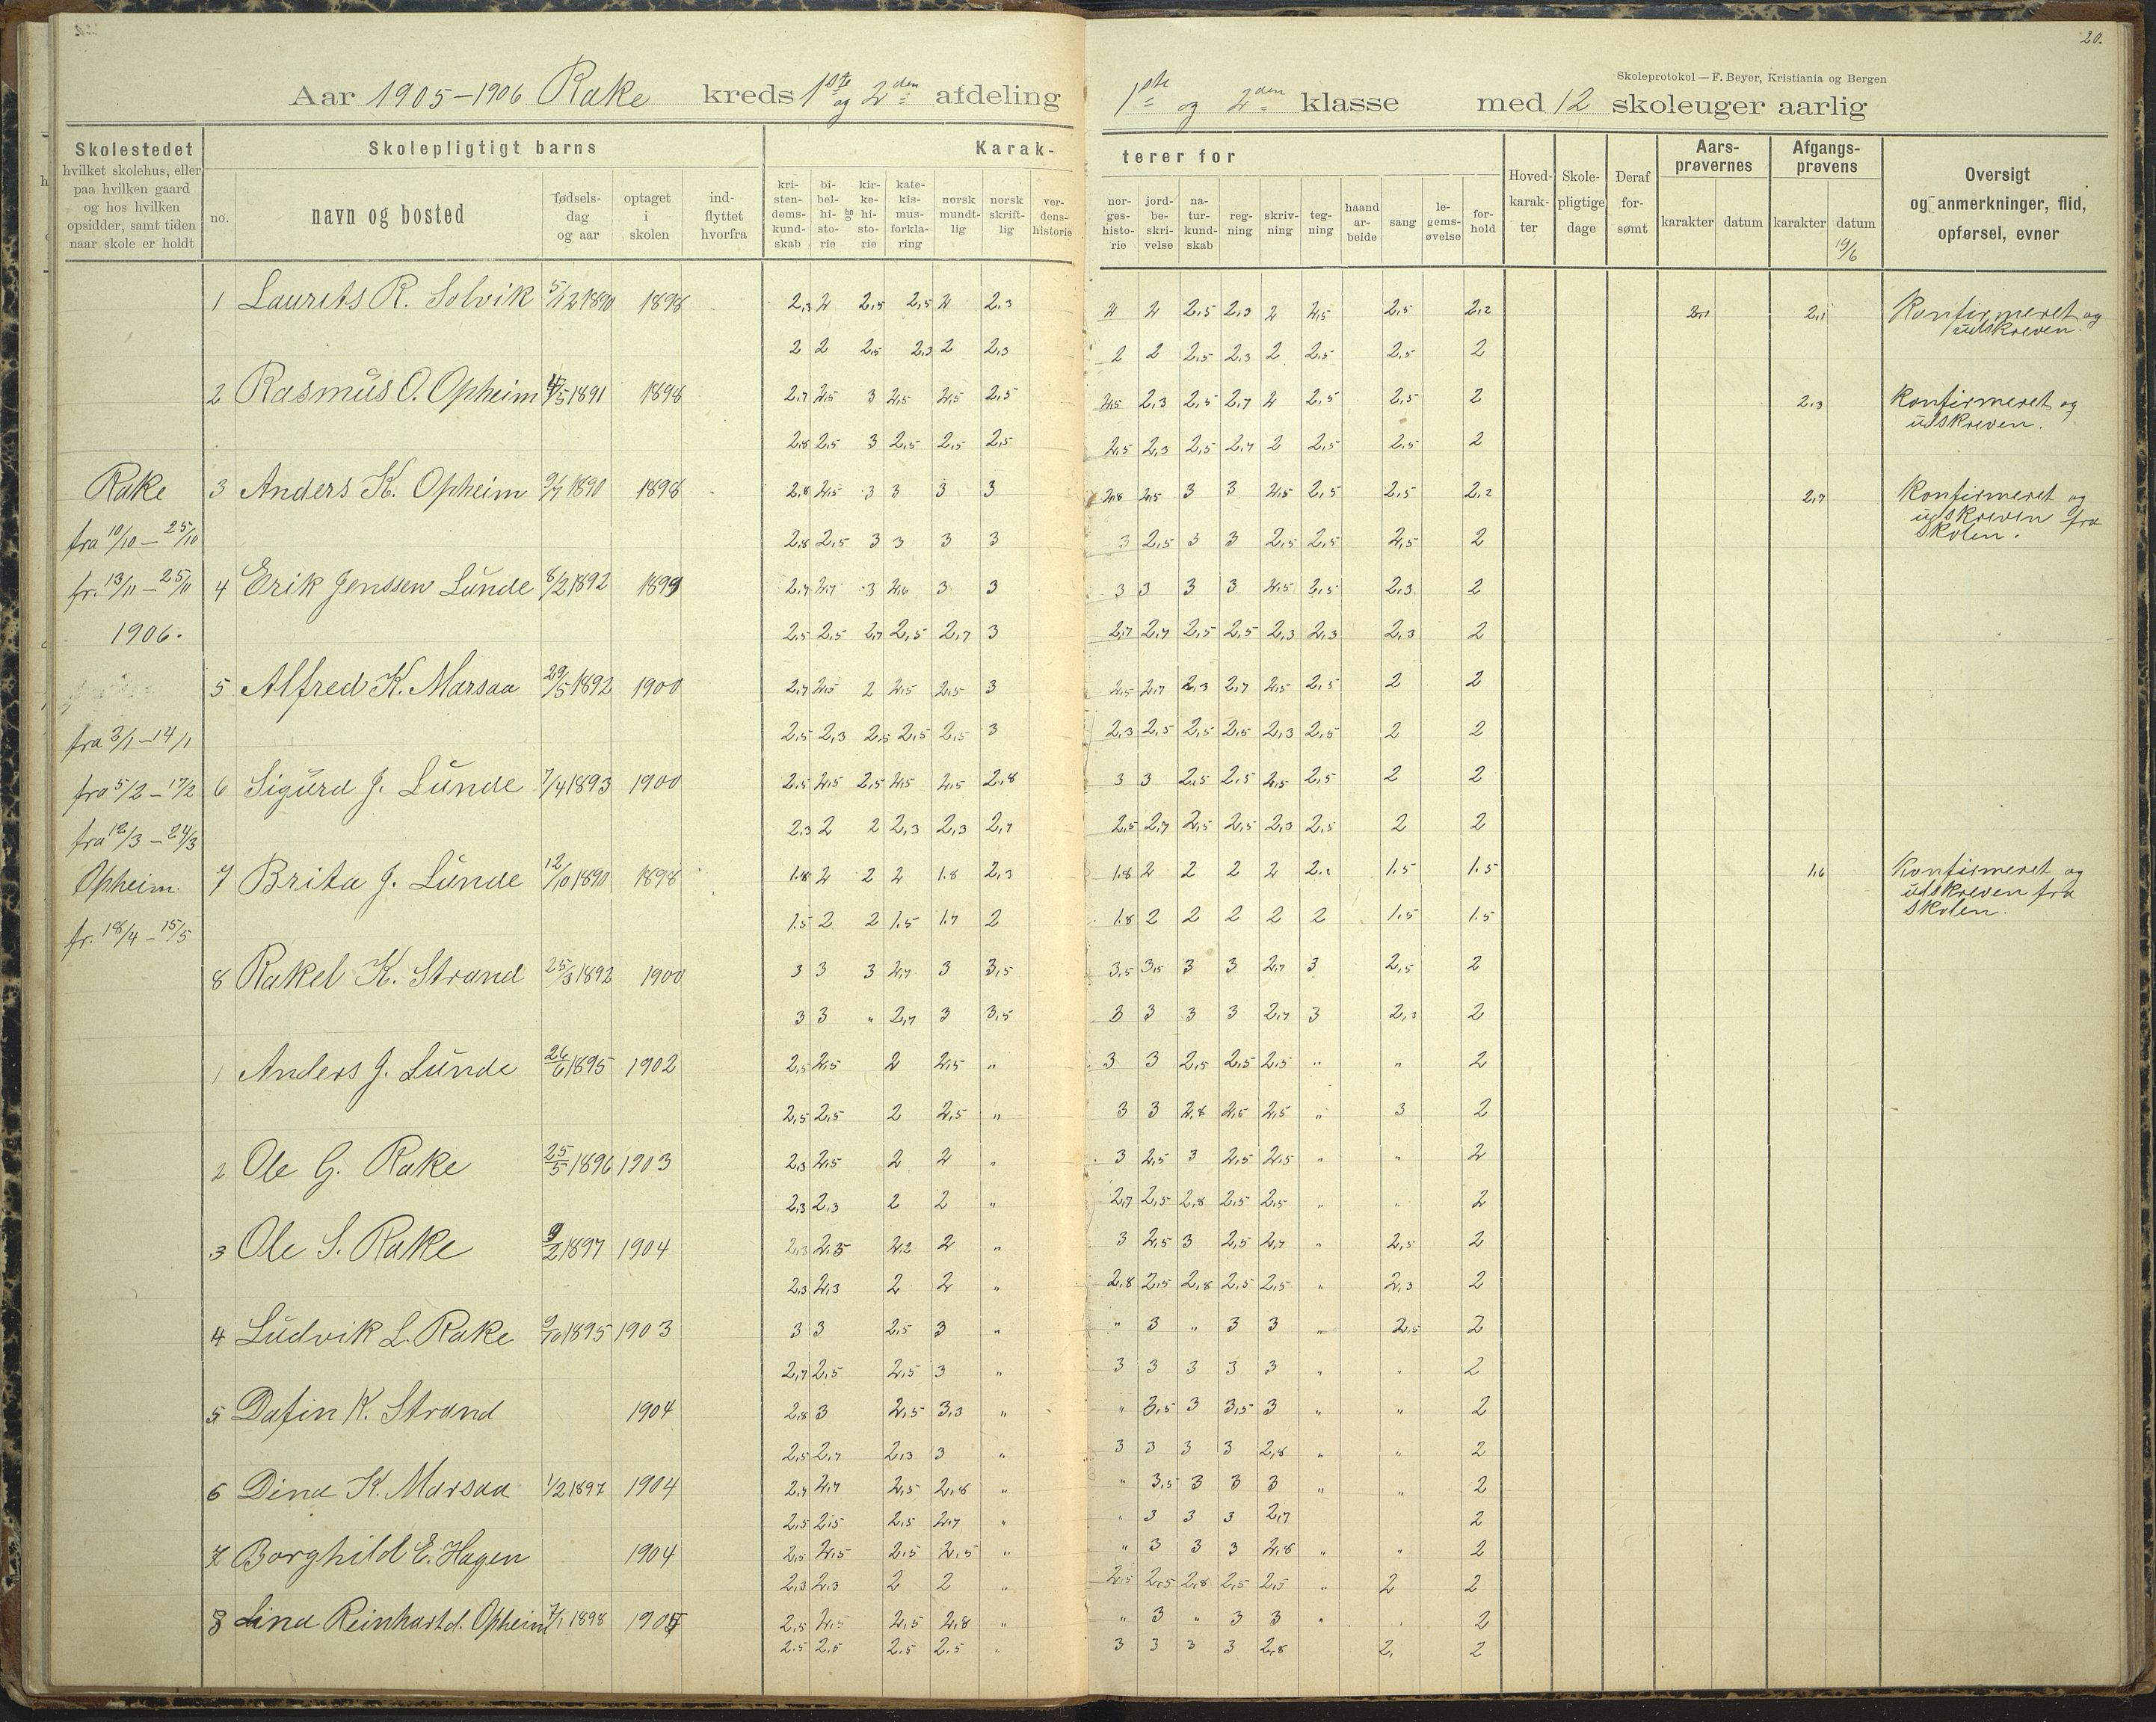 20.
Skoleprotokol — F. Beyer, Kristiania og Bergen
Aar 1905-1906 Rake kreds 1ste og 2den afdeling 1ste og 2den klasse med 12 skoleuger aarlig
Skolestedet hvilket skolehus, eller paa hvilken gaard og hos hvilken opsidder, samt tiden naar skole er holdt
Skolepligtigt barns
no. navn og bosted fødselsdag og aar optaget i skolen indflyttet hvorfra
Karakterer for
kristendomskundskab bibelhistorie kirkehistorie katekismusforklaring norsk mundtlig norsk skriftlig verdenshistorie norgeshistorie jordbeskrivelse naturkundskab regning skrivning tegning haandarbeide sang legemsøvelse forhold
Hovedkarakter Skolepligtige dage Deraf forsømt
Aarsprøvernes karakter datum
Afgangsprøvens karakter datum 19/6
Oversigt og anmerkninger, flid, opførsel, evner
1 Laurits R. Solvik 5/12 1890 1898 2,3 2 2,5 2,5 2 2,3 2 2 2,5 2,3 2 2,5 2,5 2,2 2,1 Konfirmeret og udskreven.
2 2 2,5 2,3 2 2,3 2 2 2,5 2,3 2 2,5 2,5 2
2 Rasmus O. Opheim 4/5 1891 1898 2,7 2,5 3 2,5 2,5 2,5 2,5 2,3 2,5 2,7 2 2,5 2,5 2 2,3 Konfirmeret og udskreven.
2,8 2,5 3 2,5 2,5 2,5 2,5 2,3 2,5 2,7 2 2,5 2,5 2
Rake 3 Anders K. Opheim 9/7 1890 1898 2,8 2,5 3 3 3 3 2,8 2,5 3 3 2,5 2,5 2,5 2,2 2,7 Konfirmeret og udskreven fra skolen.
fra 10/10 - 25/10 2,8 2,5 3 3 3 3 3 2,5 3 3 2,5 2,5 2,5 2
fr. 13/11 - 25/11 4 Erik Jenssen Lunde 8/2 1892 1899 2,7 2,7 3 2,6 3 3 3 3 3 3 2,5 2,5 2,3 2
1906. 2,5 2,5 2,7 2,5 2,7 3 2,7 2,7 2,5 2,5 2,3 2,3 2,3 2
5 Alfred K. Marsaa 29/5 1892 1900 2,7 2,5 2 2,5 2,5 3 2,5 2,7 2,3 2,7 2,5 2,5 2 2
fra 2/1 - 14/1 2,5 2,3 2,5 2,5 2,5 3 2,3 2,5 2,5 2,5 2,3 2,5 2 2
fra 5/2 - 17/2 6 Sigurd J. Lunde 7/4 1893 1900 2,5 2,5 2,5 2,5 2,5 2,8 3 3 2,5 2,5 2,5 2,5 2 2
fra 12/3 - 24/3 2,3 2 2 2,3 2,3 2,7 2,5 2,7 2,5 2,5 2,3 2,5 2 2
Opheim 7 Brita J. Lunde 12/10 1890 1898 1.8 2 2 2 1.8 2,3 1.8 2 2 2 2 2.2 1.5 1.5 1.6 Konfirmeret og udskreven fra skolen.
fr. 18/4 - 15/5 1.5 2 2 1.5 1.7 2 1.8 2 2 2 2 2 1.5 1.5
8 Rakel K. Strand 25/3 1892 1900 3 3 3 2,7 3 3,5 3,5 3,5 3 3 2,7 3 2,5 2
3 3 " 2,7 3 3,5 3 3 3 3 2,7 3 2,3 2
1 Anders J. Lunde 26/6 1895 1902 2,5 2,5 2 2,5 " 3 3 2,5 2,5 2,5 " " 2
2,5 2,5 2 2,5 " 3 3 2,8 2,5 2,5 " 3 2
2 Ole G. Rake 25/5 1896 1903 2,3 2,5 2 2 " 3 2,5 3 2,5 2,5 " " 2
2,3 2,3 2 2 " 2,7 2,5 2,8 2,5 2,5 " " 2
3 Ole S. Rake 9/2 1897 1904 2,3 2,5 2,2 2 " 3 2,5 3 2,5 2,7 " 2,5 2
2,3 2,3 2 2 " 2,8 2,5 2,8 2,5 2,5 " 2,3 2
4 Ludvik L. Rake 9/10 1895 1903 3 3 2,5 3 " " 3 " 3 3 " 2,5 2
2,7 2,5 2,5 3 " 3 3 3 3 3 " " 2
5 Dafin K. Strand 1904 2,8 3 2,5 3,3 " " 3,5 3 3,5 3 " " 2
2,5 2,7 2,3 3 " 3 3 3 3 2,8 " " 2
6 Dina K. Marsaa 1/2 1897 1904 2,7 2,7 2,5 2,8 " " 3,5 3 3 3 " " 2
2,5 2,5 2,5 2,7 " " 3 3 3 2,7 2
7 Borghild E. Hagen 1904 2,5 2,5 2,5 2,5 " " 3 3 3 2,8 " " 2
2,3 2,3 2 2 " 2,5 2,5 2,8 2,5 2,5 " 2 2
8 Lina Reinhartd. Opheim 7/1 1898 1905 2,5 2,5 2,5 2,8 " " 3 " 3 3 " " 2
2.5 2,5 2.5 2.5 " 3 3 3 3 2,8 2, 2